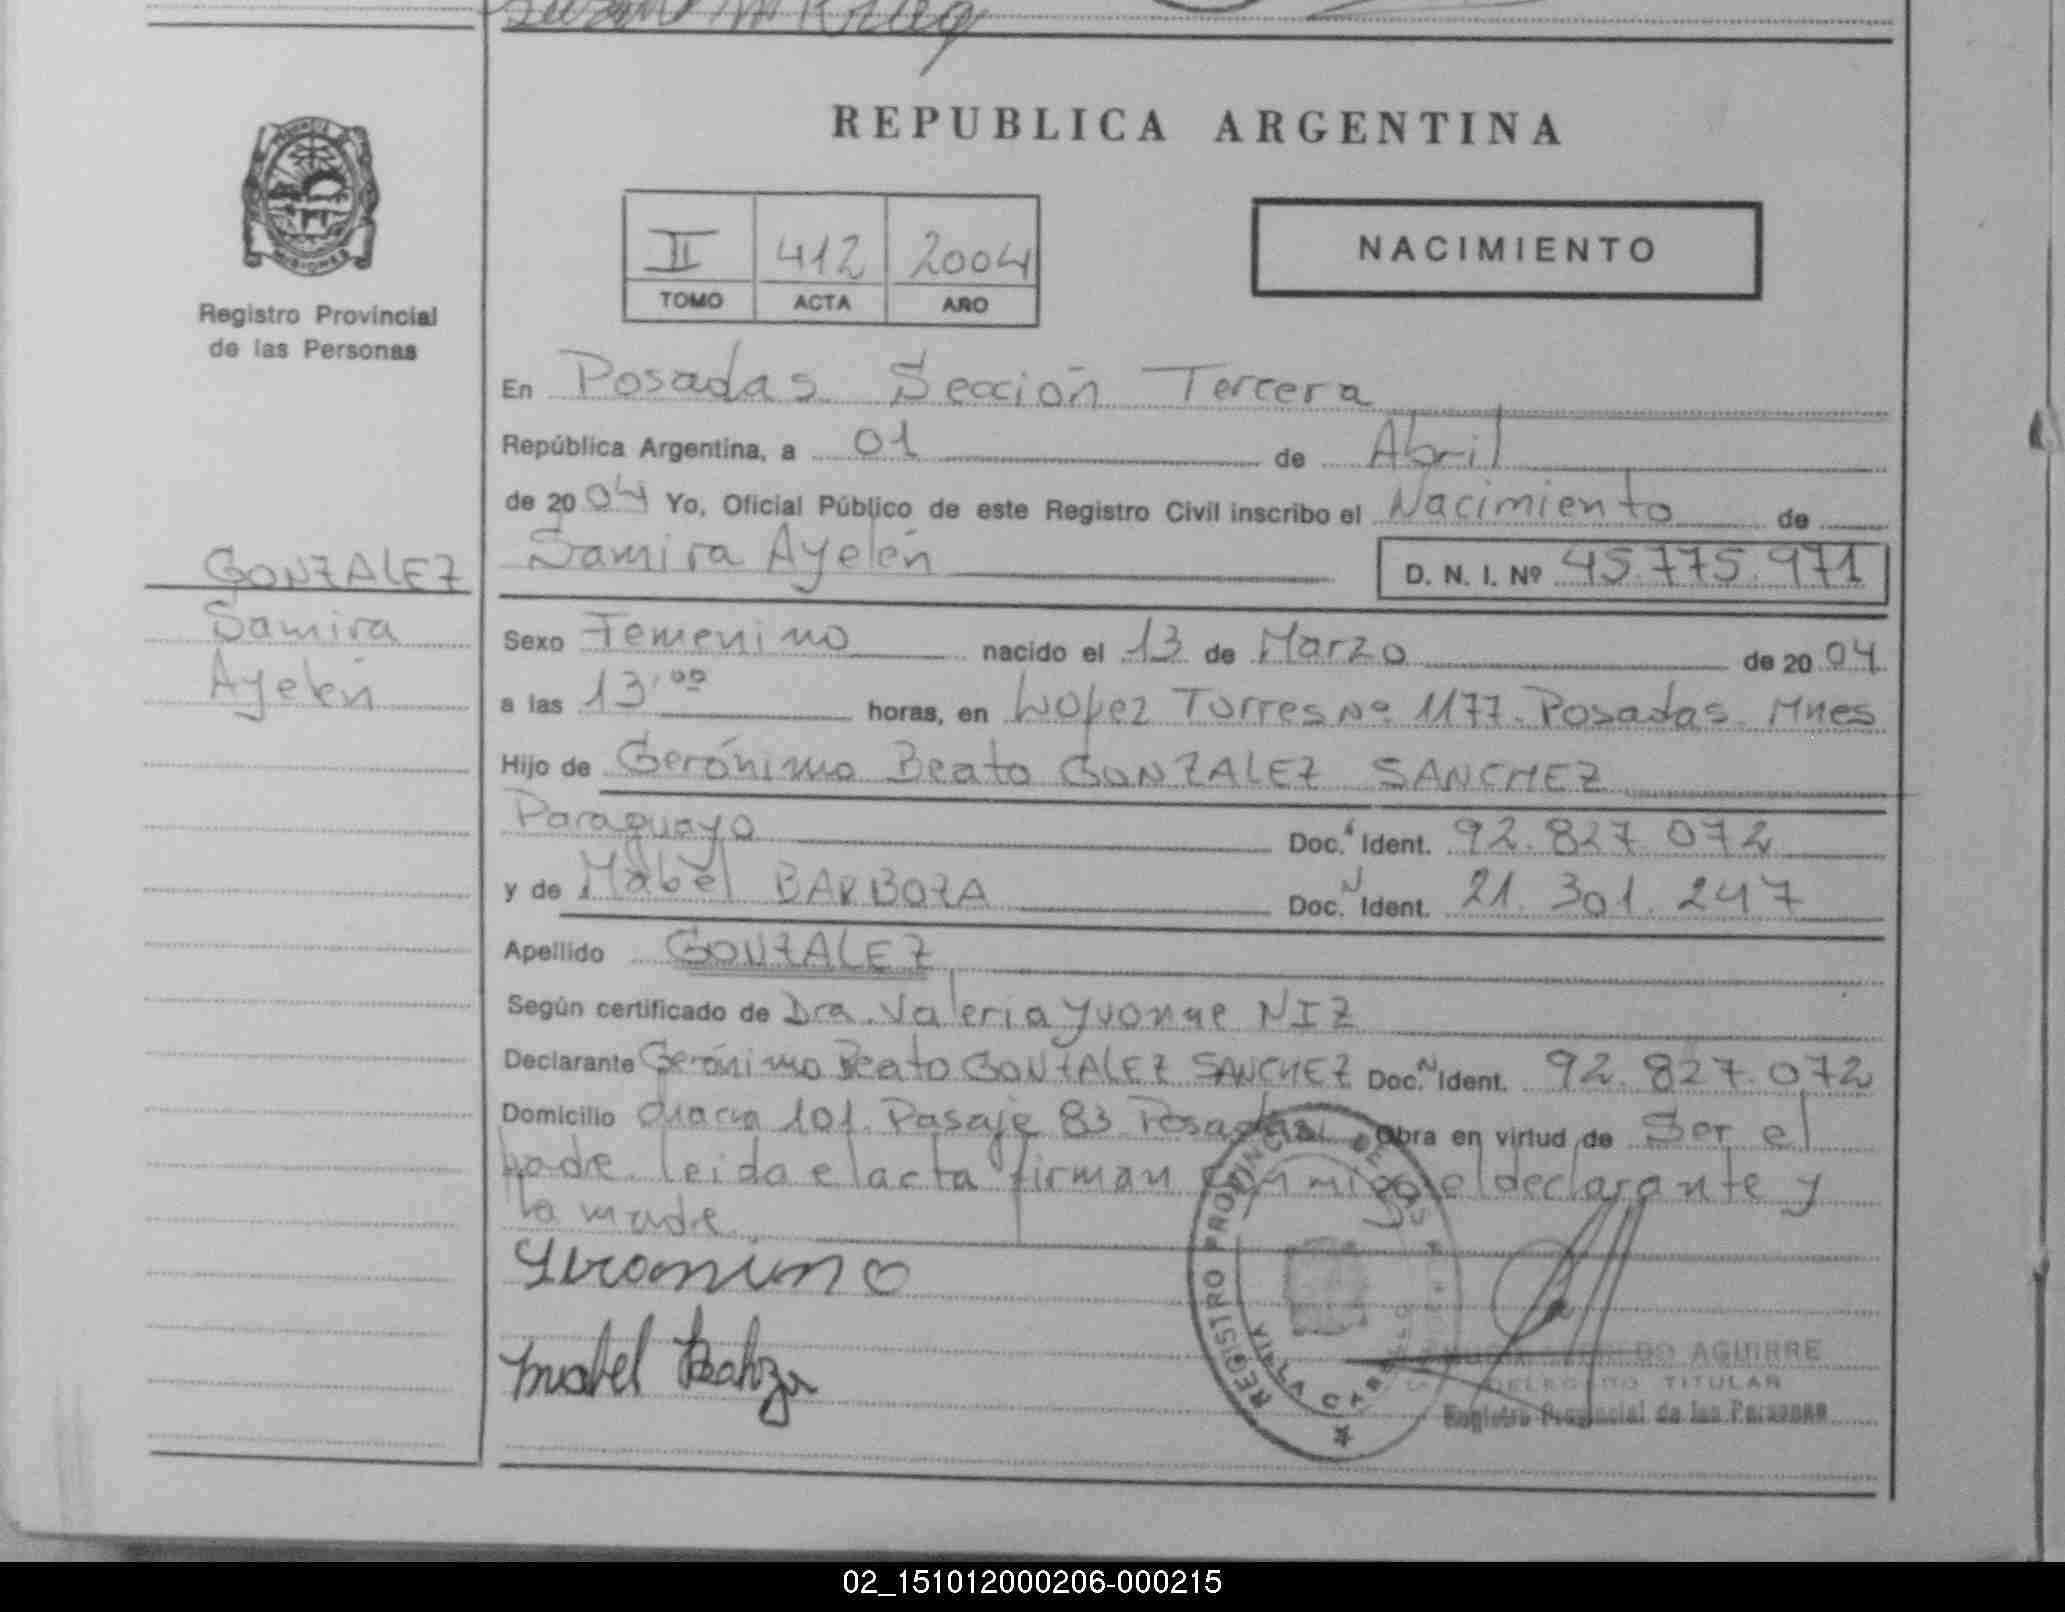 REPUBLICA ARGENTINA
PROVINCIA
MISIONES
Registro Provincial
de las Personas
II 412 2004
TOMO ACTA AÑO
NACIMIENTO
En Posadas Sección Tercera
República Argentina, a 01 de Abril
de 2004 Yo, Oficial Público de este Registro Civil inscribo el Nacimiento de
Samira Ayelén D. N. I. Nº 45.775.971
GONZALEZ
Samira
Ayelén
Sexo Femenino nacido el 13 de Marzo de 2004
a las 13,00 horas, en López Torres Nº 1177. Posadas. Mnes
Hijo de Gerónimo Beato GONZALEZ SANCHEZ
Paraguayo Doc. Ident. 92.827.072
y de Mabel BARBOZA Doc. Ident. 21.301.247
Apellido GONZALEZ
Según certificado de Dra. Valeria Yvonne NIZ
Declarante Gerónimo Beato GONZALEZ SANCHEZ Doc. N Ident. 92.827.072
Domicilio chacra 101. Pasaje 83 Posadas Obra en virtud de Ser el
padre. leida el acta firman conmigo el declarante y
la madre.
Geronimo
Mabel
REGISTRO PROVINCIAL DE LAS
AGUIRRE
DELEGADO TITULAR
Registro Provincial de las Personas
02_151012000206-000215